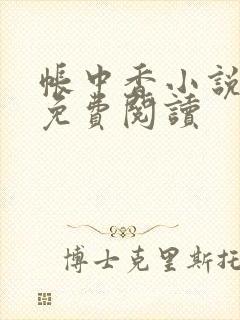 帳中香小說
免費閱讀
博士克里斯托